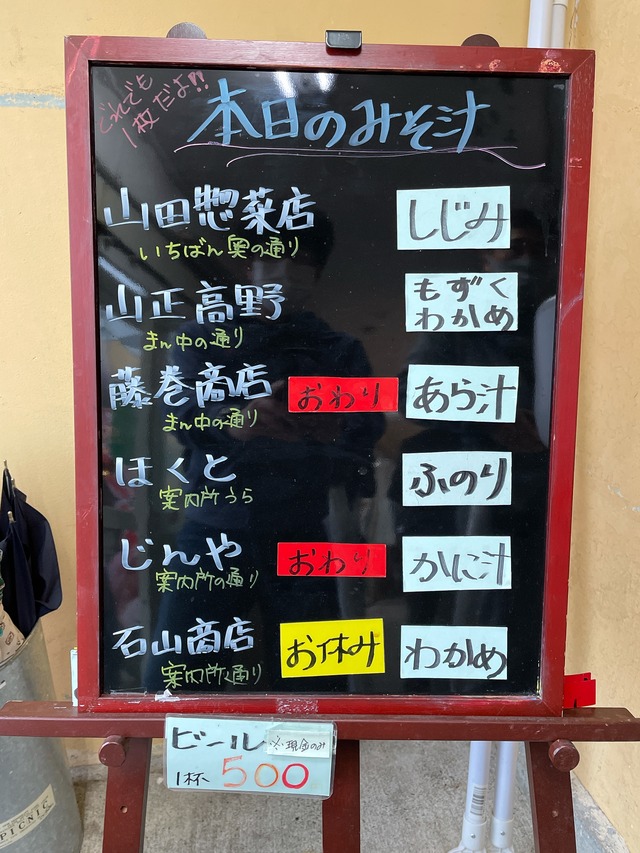 どれでも
1枚だよ!!
本日のみそ汁
山田惣菜店
しじみ
いちばん奥の通り
山正高野
もずく
わかめ
まん中の通り
藤巻商店
おわり
あら汁
まん中の通り
ほくと
ふのり
案内所うら
じんや
おわり
かに汁
案内所の通り
石山商店
お休み
わかめ
案内所通り
ビール
※現金のみ
1杯 500
PICNIC